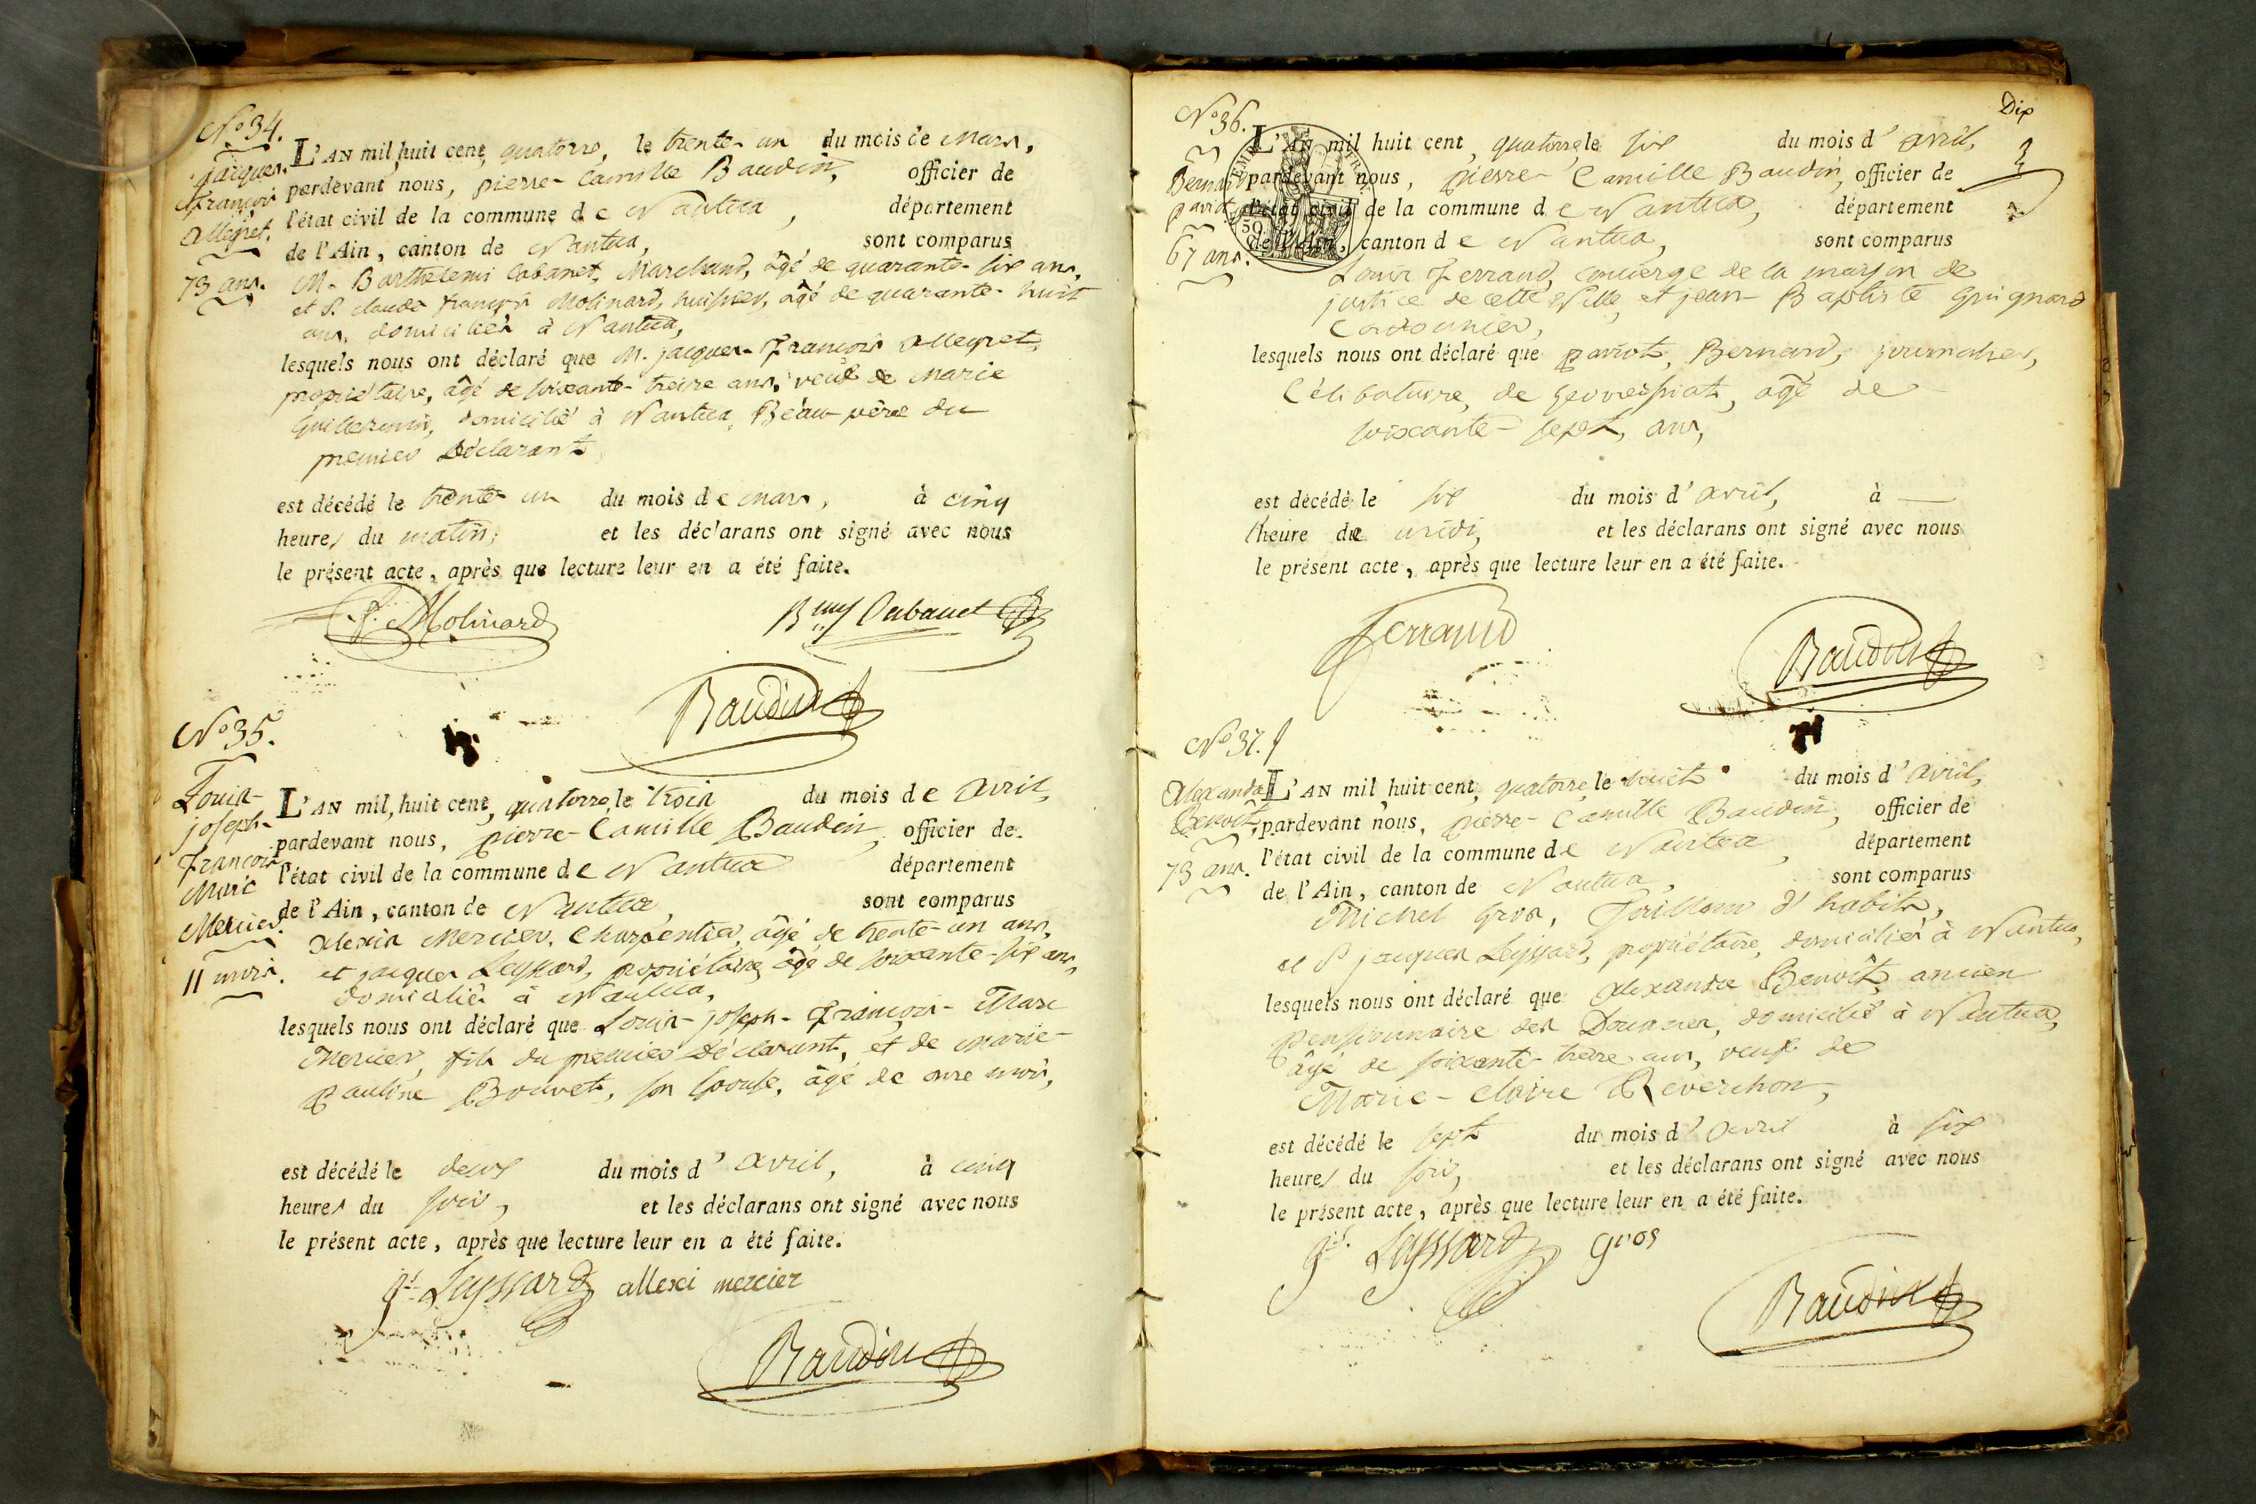 N° 34.
L'AN mil huit cent quatorze, le trente un du mois de Mars,
Jacques
pardevant nous, pierre-Camille Baudin, officier de
François
l'état civil de la commune de Nantua, département
Allegret.
de l'Ain, canton de Nantua, sont comparus
73 ans.
M. Barthelemi Cabanet, Marchand, âgé de quarante-six ans,
et S. claude françois Molinard, huissier, âgé de quarante-huit
ans, domiciliés à Nantua,
lesquels nous ont déclaré que M. jacques-François Allegret,
propriétaire, âgé de soixante-treize ans, veuf de Marie
Guillermin, domicilié à Nantua, Beau-père du
premier Déclarant,
est décédé le trente un du mois de mars, à cinq
heures du matin, et les déclarans ont signé avec nous
le présent acte, après que lecture leur en a été faite.
Molinard Bmy Cabanet
Baudin
N° 35.
Louis-
joseph-
François
Marc
Mercier.
11 mois.
L'AN mil huit cent quatorze, le trois du mois de Avril,
pardevant nous, pierre-Camille Baudin, officier de
l'état civil de la commune de Nantua département
de l'Ain, canton de Nantua, sont comparus
Alexis Mercier, Charpentier, âgé de trente-un ans,
et jacques Leyssard, propriétaire, âgé de soixante-six ans,
domiciliés à Nantua,
lesquels nous ont déclaré que Louis-joseph-François-Marc
Mercier, fils du premier Déclarant, et de Marie-
Pauline Bouvet, son épouse, âgé de onze mois,
est décédé le deux du mois d'avril, à cinq
heures du soir, et les déclarans ont signé avec nous
le présent acte, après que lecture leur en a été faite.
Leyssard allexi mercier
Baudin
Dix
N° 36.
Bernard
pariot
67 ans.
L'AN mil huit cent quatorze, le six du mois d'avril,
pardevant nous, pierre-Camille Baudin, officier de
l'état civil de la commune de Nantua, département
de l'Ain, canton de Nantua, sont comparus
Louis Ferrand, concierge de la maison de
justice de cette Ville, et jean-Baptiste Guignard
Cordonnier,
lesquels nous ont déclaré que pariot, Bernard, journalier,
Célibataire, de Geovressiat, âgé de
soixante-sept, ans,
est décédé le six du mois d'avril, à —
l'heure de midi, et les déclarans ont signé avec nous
le présent acte, après que lecture leur en a été faite.
Ferrand
Baudin
N° 37.
Alexandre
Benoit,
73 ans.
L'AN mil huit cent quatorze, le huit du mois d'avril,
pardevant nous, pierre-Camille Baudin, officier de
l'état civil de la commune de Nantua, département
de l'Ain, canton de Nantua, sont comparus
Michel Gros, Tailleur d'habits,
et S. jacques Leyssard, propriétaire, domiciliés à Nantua,
lesquels nous ont déclaré que Alexandre Benoît, ancien
pensionnaire des Douanes, domicilié à Nantua,
âgé de soixante-treize ans, veuf de
Marie-Claire Reverchon,
est décédé le sept du mois d'avril à six
heures du soir, et les déclarans ont signé avec nous
le présent acte, après que lecture leur en a été faite.
Leyssard gros
Baudin